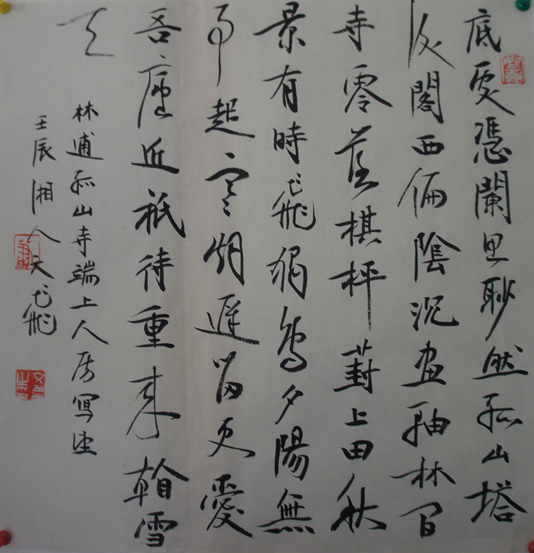 底處憑闌思眇然孤山塔
後閣西偏陰沉畫軸林間
寺零落棋枰葑上田秋
景有時飛獨鳥夕陽無
事起寒烟遲留更愛
吾廬近祇待重來看雪
天
林逋孤山寺端上人房寫望
壬辰湘人文飛